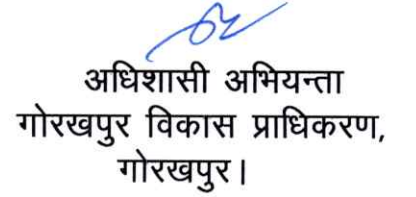 अधिशासी अभियन्ता
गोरखपुर विकास प्राधिकरण,
गोरखपुर।